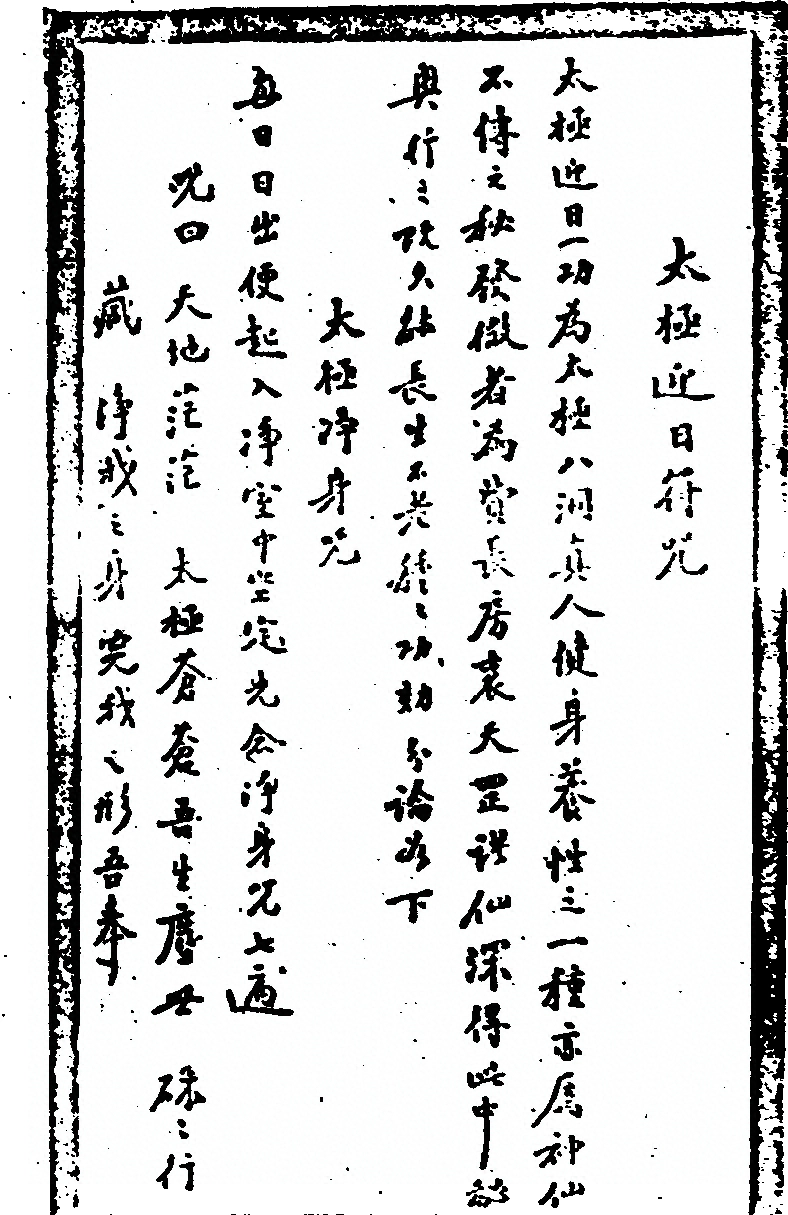 太極迎日符咒
太極迎日一功為太極八洞真人健身養性之一種亦屬神仙
不傳之秘發微者為費長房袁天罡諸仙深得此中
奧行之既久能長生不老種之功効分論如下
太極淨身咒
每日日出便起入淨室中坐定先念淨身咒七遍
咒曰 天地茫茫 太極蒼蒼吾生塵世 碌之行
藏 淨我之身 完我之形吾奉